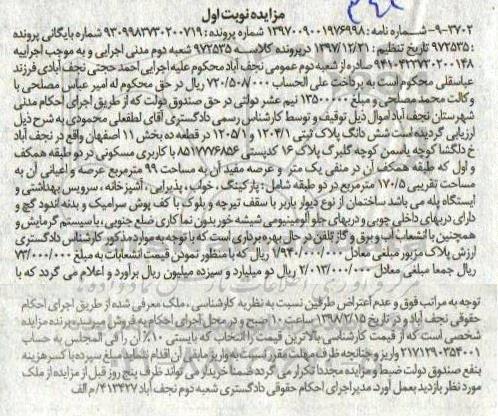 مزایده نوبت اول
۹-۳۷۰۲- شماره نامه: ۱۳۹۷۰۰۹۰۰۱۹۷۶۹۹۸ شماره پرونده: ۹۳۰۹۹۸۳۷۳۰۲۰۰۷۱۹ شماره بایگانی پرونده
: ۹۷۲۵۳۵ تاریخ تنظیم: ۱۳۹۷/۱۲/۲۱ در پرونده کلاسه ۹۷۲۵۳۵ شعبه دوم مدنی اجرایی و به موجب اجراییه
۹۴۱۰۴۲۳۷۳۰۲۰۰۱۴۸ صادره از شعبه دوم عمومی نجف آباد محکوم علیه اجرایی احمد حجتی نجف آبادی فرزند
عباسقلی محکوم است به پرداخت علی الحساب ۷۲۰/۵۰۷/۰۰۰ ریال در حق محکوم له امیر عباس مصلحی با
وکالت محمد مصلحی و مبلغ ۱۳۵۰۰۰۰۰ نیم عشر دولتی در حق صندوق دولت که از طریق اجرای احکام مدنی
شهرستان نجف آباد اموال ذیل توقیف و توسط کارشناس رسمی دادگستری آقای لطفعلی محمودی به شرح ذیل
ارزیابی گردیده است شش دانگ پلاک ثبتی ۱۲۰۴/۱ و ۱۲۰۵/۱ در قطعه ده بخش ۱۱ اصفهان واقع در نجف آباد
خ دلگشا کوچه یاسمن کوچه گلبرگ پلاک ۱۶ کدپستی ۸۵۱۷۷۷۶۸۵۶ با کاربری مسکونی در دو طبقه همکف
و اول که طبقه همکف آن در منفی یک متر و عرصه مفید آن به مساحت ۹۹ مترمربع عرصه و اعیانی آن به
مساحت تقریبی ۱۷۰/۵ مترمربع در دو طبقه شامل: پارکینگ، خواب، پذیرایی، آشپزخانه، سرویس بهداشتی و
ایستگاه پله می باشد ساختمان از نوع دیوار باربر با سقف تیرچه و بلوک با کف پوش سرامیک و بدنه اندود گچ و
دارای دربهای داخلی چوبی و دربهای جلو آلومینیومی شیشه خور بدون نما کاری ضلع جنوبی، با سیستم گرمایش و
همچنین با انشعاب آب و برق و گاز تلفن در حال بهره برداری است که با توجه به موارد مذکور کارشناس دادگستری
ارزش پلاک مزبور مبلغی معادل ۱/۹۴۰/۰۰۰/۰۰۰ ریال که با منظور نمودن قیمت انشعابات به مبلغ ۷۳/۰۰۰/۰۰۰
ریال جمعا مبلغی معادل ۲/۰۱۳/۰۰۰/۰۰۰ ریال دو میلیارد و سیزده میلیون ریال برآورد و اعلام می گردد که با
توجه به مراتب فوق و عدم اعتراض طرفین نسبت به نظریه کارشناسی، ملک معرفی شده از طریق اجرای احکام
حقوقی نجف آباد و در تاریخ ۱۳۹۸/۲/۱۵ ساعت ۱۰ صبح و در محل اجرای احکام به فروش میرسد، برنده مزایده
شخصی است که از قیمت کارشناسی بالاترین قیمت را انتخاب که بایستی ۱۰٪ آن را فی المجلس به حساب
۲۱۷۱۲۹۰۳۵۴۰۰۱ واریز و چنانچه ظرف مهلت مقرر نسبت به واریز مابقی آن اقدام ننماید مبلغ سپرده با کسر هزینه
بنفع صندوق دولت ضبط و مزایده مجددا تکرار می گردد ضمنا خریدار می تواند ظرف پنج روز قبل از مزایده از ملک
مورد نظر بازدید بعمل آورد. مدیر اجرای احکام حقوقی دادگستری شعبه دوم نجف آباد ۴۱۳۴۲۷/م الف